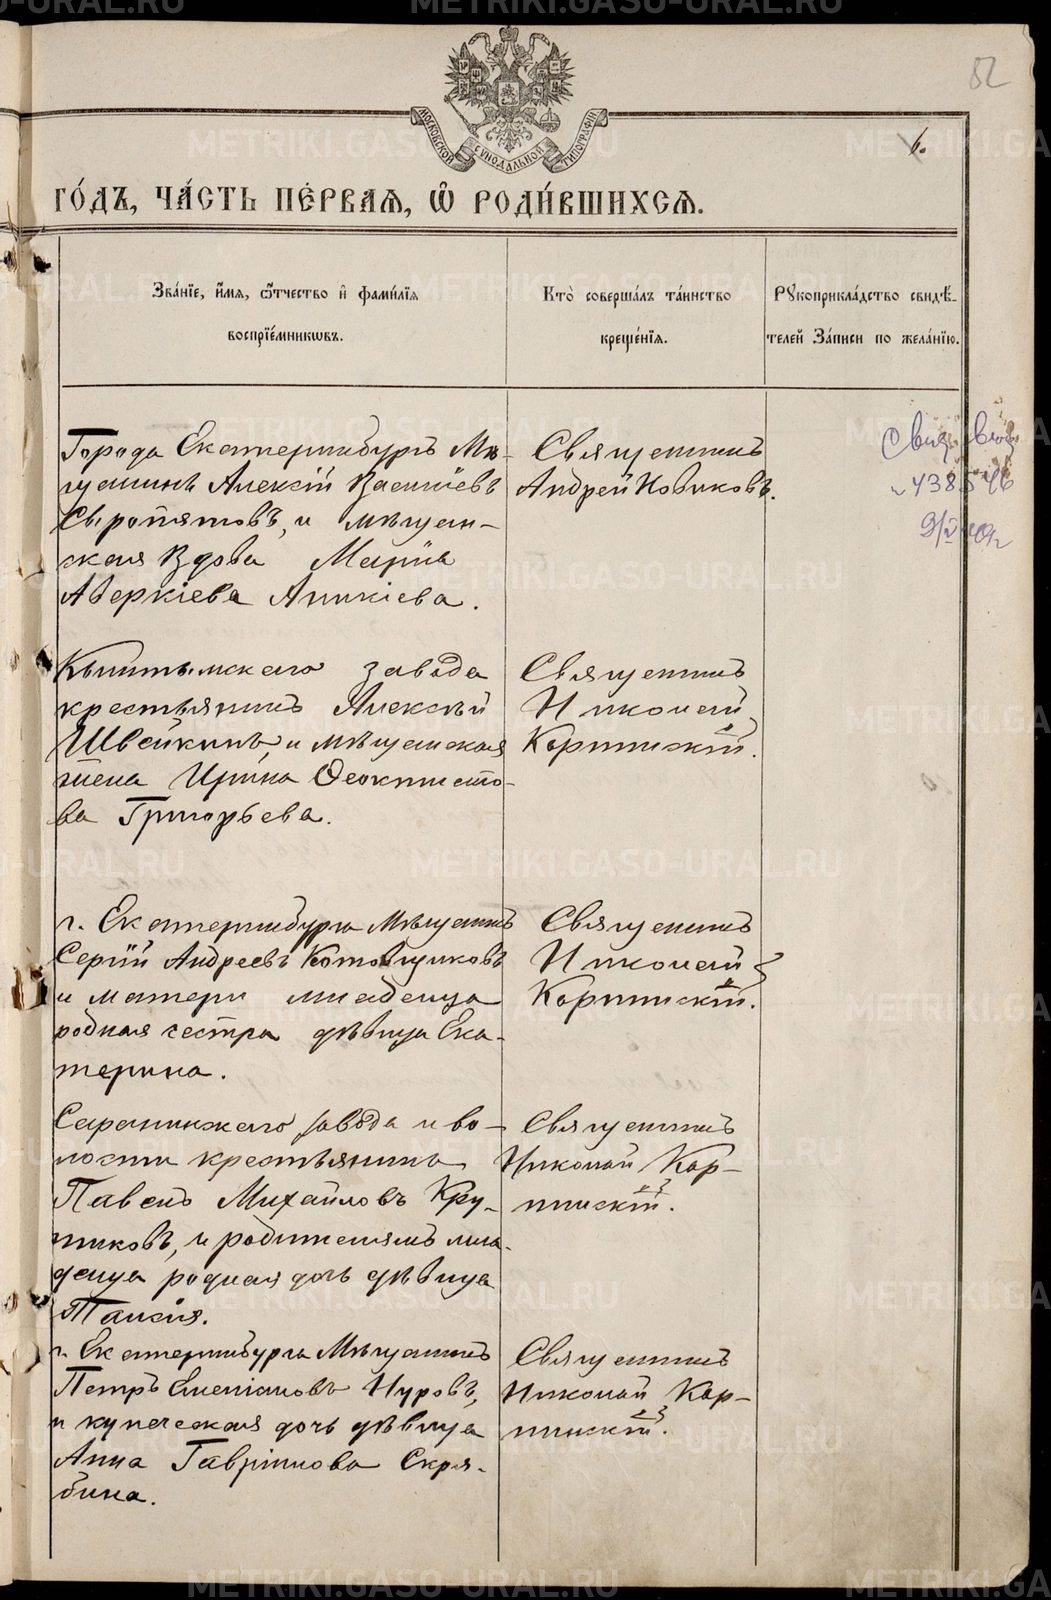 52
6.
МОСКОВСКОЙ СѴНОДАЛЬНОЙ ТИПОГРАФІИ
ГО́ДЪ, ЧА́СТЬ ПЕ́РВАѦ, Ѡ҆ РОДИ́ВШИХСѦ.
Зва́нїе, и҆́мѧ, ѻ҆́тчество и҆ фами́лїѧ
воспрїе́мникѡвъ.
Кто̀ соверша́лъ та́инство
креще́нїѧ.
Рꙋкоприкла́дство свидѣ́-
телей За́писи по жела́нїю.
Города Екатеринбургъ Мѣ-
щанинъ Алексій Василіевъ
Сыропятовъ, и мѣщан-
ская Вдова Марія
Аверкіева Аникіева.
Священникъ
Андрей Новиковъ.
Кыштымскаго завода
крестьянинъ Алексѣй
Швейкинъ и мѣщанская
жена Ирина Ѳеоктисто-
ва Григорьева.
Священникъ
Николай
Корпинскій.
г. Екатеринбурга Мѣщанинъ
Сергій Андреевъ Котовщиковъ
и матери младенца
родная сестра дѣвица Ека-
терина.
Священникъ
Николай
Корпинскій.
Саранинскаго завода и во-
лости крестьянинъ
Павелъ Михайловъ Кру-
тиковъ, и родителямъ мла-
денца родная дочь дѣвица
Таисія.
Священникъ
Николай Кор-
пинскій.
г. Екатеринбурга Мѣщанинъ
Петръ Емеліановъ Нуровъ,
и купеческая дочь дѣвица
Анна Гавріилова Скря-
бина.
Священникъ
Николай Кор-
пинскій.
METRIKI.GASO-URAL.RU